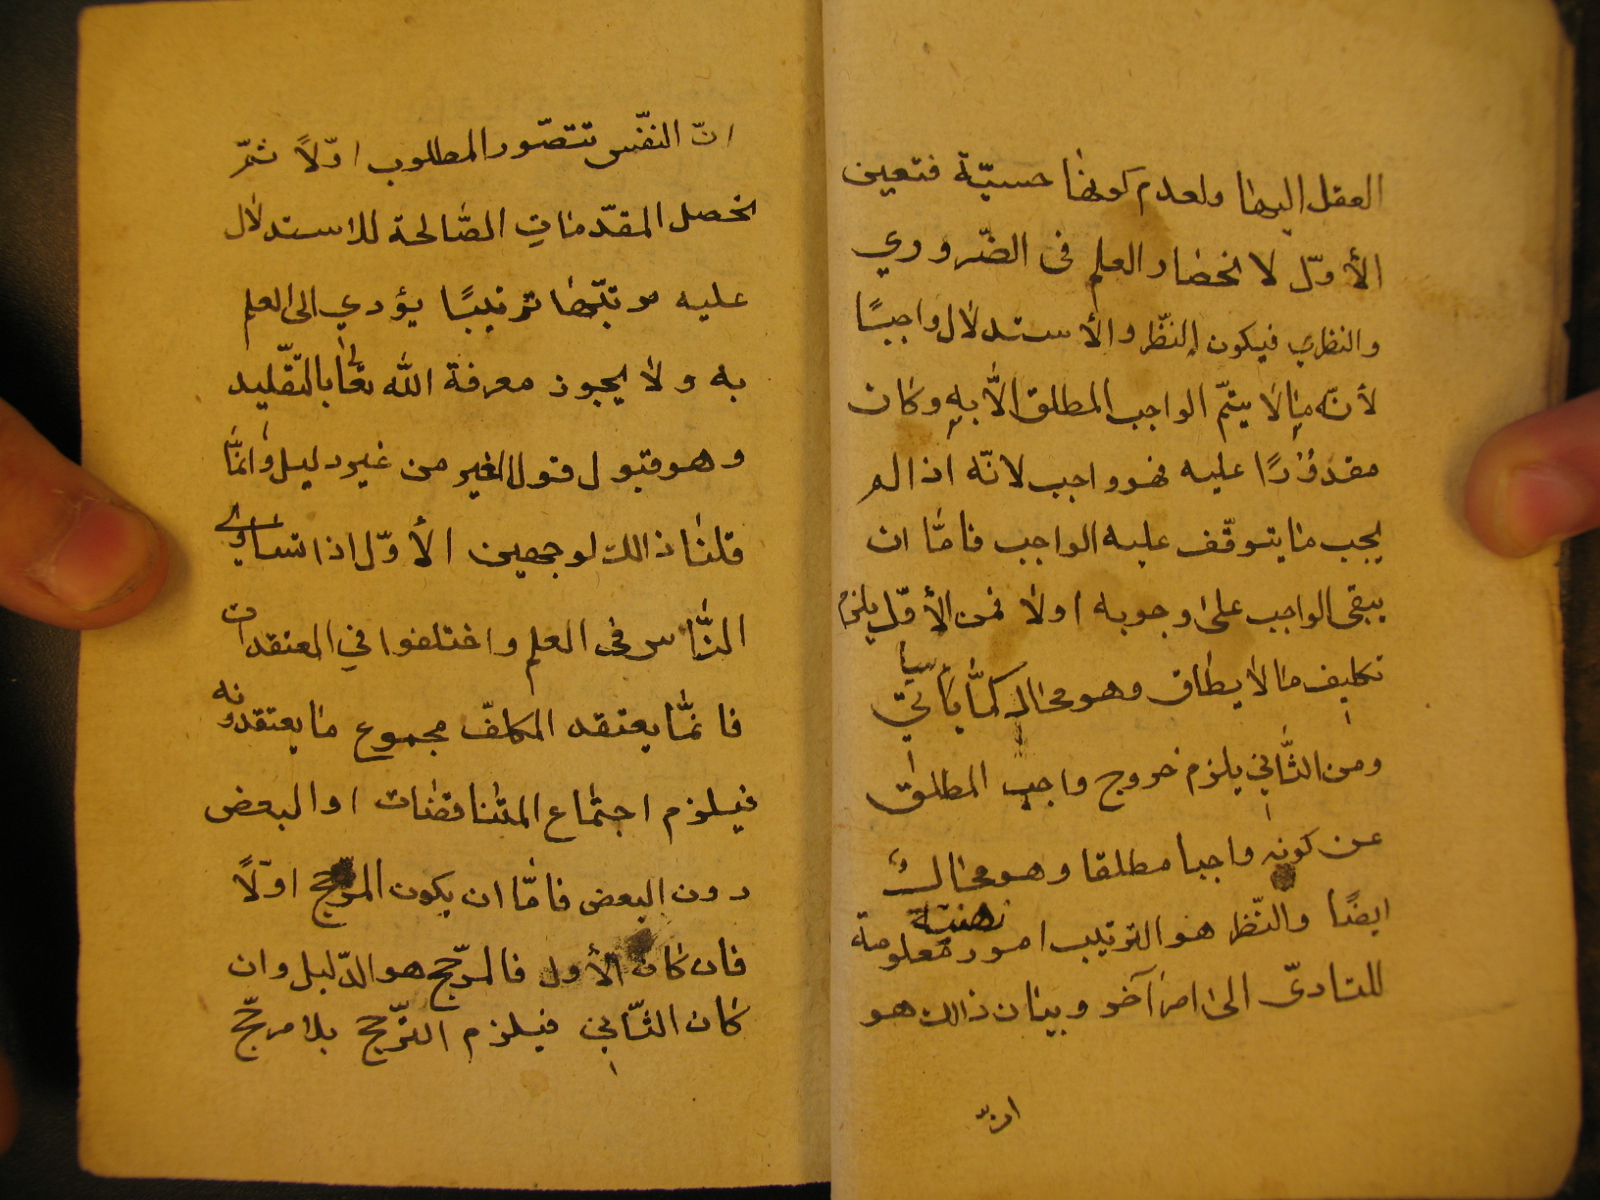 العقل اليها ولعدم كونها حسيّة فتعين
الأوّل لانحصار العلم فى الضّروري
والنظري فيكون النّظر والأستدلال واجبًا
لأنّه ما لا يتمّ الواجب المطلق الّا به وكان
مقدورًا عليه فهو واجب لانّه اذا لم
يجب ما يتوقّف عليه الواجب فامّا ان
يبقى الواجب على وجوبه اولا فمن الأوّل يلزم
تكليف ما لا يطاق وهو محال كمّا سياتي
ومن الثّاني يلزم خروج واجب المطلق
عن كونه واجبا مطلقا وهو محال
ايضًا والنّظر هو الترتيب امور ذهنيّة معلومة
للتادىّ الى امر آخر وبيان ذالك هو
انّ
انّ النفّس تتصّور المطلوب اوّلاً ثمّ
يحصل المقدّمات الصّالحة للاستدلال
عليه مرتبّها ترتيبًا يؤدي الى العلم
به ولا يجوز معرفة الله تعالى بالتقّليد
وهو قبول قول الغير من غير دليل وانمّا
قلنا ذالك لوجهين الأوّل اذا تساوى
النّاس فى العلم واختلفوا في المعتقدات
فامّا يعتقد المكلفّ مجموع ما يعتقدونه
فيلزم اجتماع المتناقضات او البعض
دون البعض فامّا ان يكون المرّجح اولّاً
فان كان الأول فالمرجّح هو الدّليل وان
كان الثّاني فيلزم الترّجح بلا مرجّح